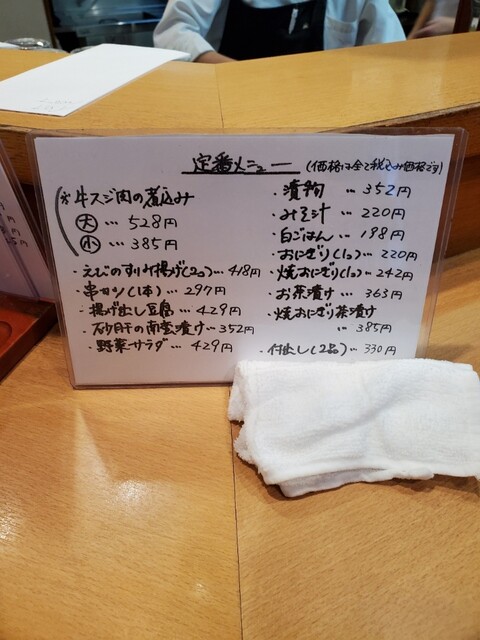 定番メニュー
(価格は全て税込み価格です)
☆牛スジ肉の煮込み
大 … 528円
小 … 385円
・えびのすりみ揚げ(2コ)… 418円
・串カツ(1本)… 297円
・揚げ出し豆腐 … 429円
・砂肝の南蛮漬け … 352円
・野菜サラダ … 429円
・漬物 … 352円
・みそ汁 … 220円
・白ごはん … 198円
・おにぎり(1コ)… 220円
・焼おにぎり(1コ)… 242円
・お茶漬け … 363円
・焼おにぎり茶漬け
… 385円
・付出し(2品)… 330円